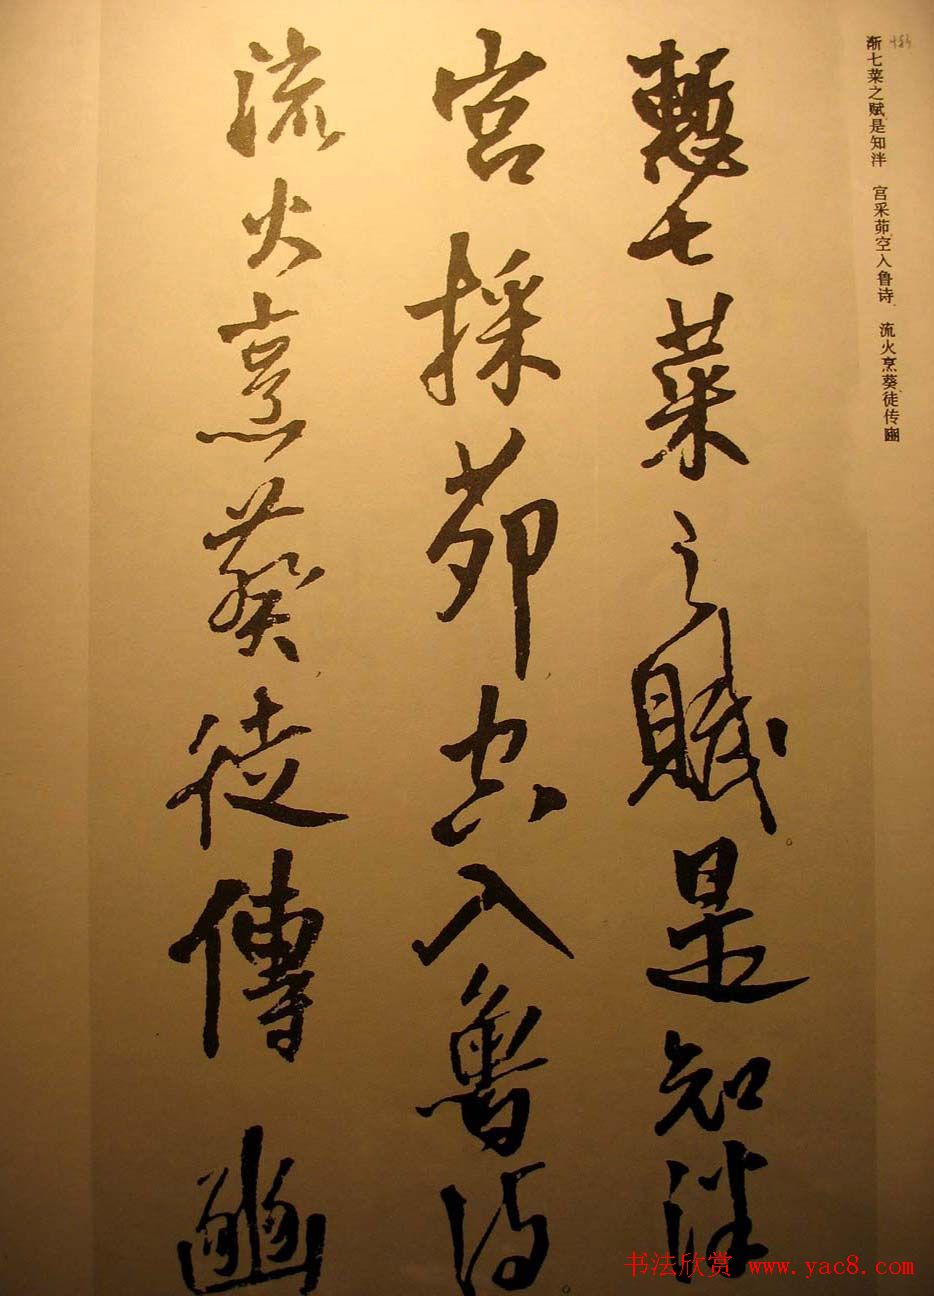 渐七菜之赋是知泮 宫采茆空入鲁诗 流火烹葵徒传豳
慙七菜之賦是知泮
宮採茆空入魯詩
流火烹葵徒傳豳
书法欣赏 www.yac8.com